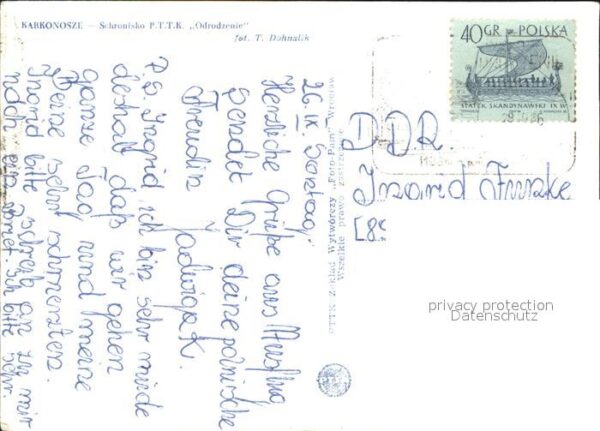 KARKONOSZE — Schronisko P.T.T.K. „Odrodzenie"
fot. T. Dohnalik
26. IX. Sontag
Herzliche Grüße aus Ausflug
sendet Dir deine polnische
Freudin
Jadwiga K.
P.S. Ingrid, ich bin sehr müde
deshalb daß wir gehen
ganze Tag und meine
Beine sehr schmerzten.
Ingrid bitte schreib an zu mir
nach ein Ich bitte sehr.
Wytwórczy „Foto-Pam" Wrocław
Wszelkie prawa zastrzeżone
40 GR POLSKA
STATEK SKANDYNAWSKI IX W.
DDR
Ingrid Funke
privacy protection
Datenschutz